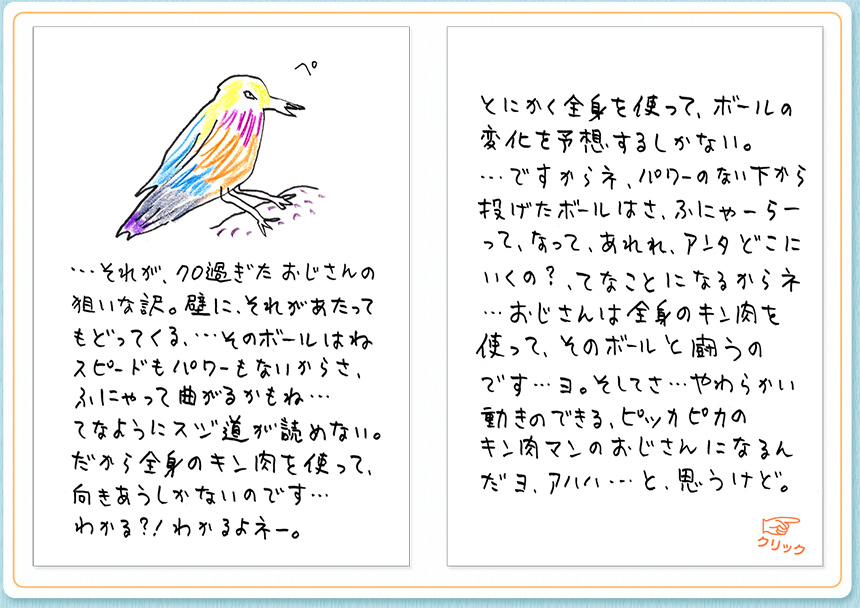 ペ
…それが、70過ぎたおじさんの
狙いな訳。壁に、それがあたって
もどってくる、…そのボールはね
スピードもパワーもないからさ、
ふにゃって曲がるかもね…
てなようにスジ道が読めない。
だから全身のキン肉を使って、
向きあうしかないのです…
わかる?!わかるよネー。
とにかく全身を使って、ボールの
変化を予想するしかない。
…ですからネ、パワーのない下から
投げたボールはさ、ふにゃーらー
って、なって、あれれ、アンタどこに
いくの?、てなことになるからネ
…おじさんは全身のキン肉を
使って、そのボールと闘うの
です…ヨ。そしてさ…やわらかい
動きのできる、ピッカピカの
キン肉マンのおじさんになるん
だヨ、アハハ…と、思うけど。
クリック